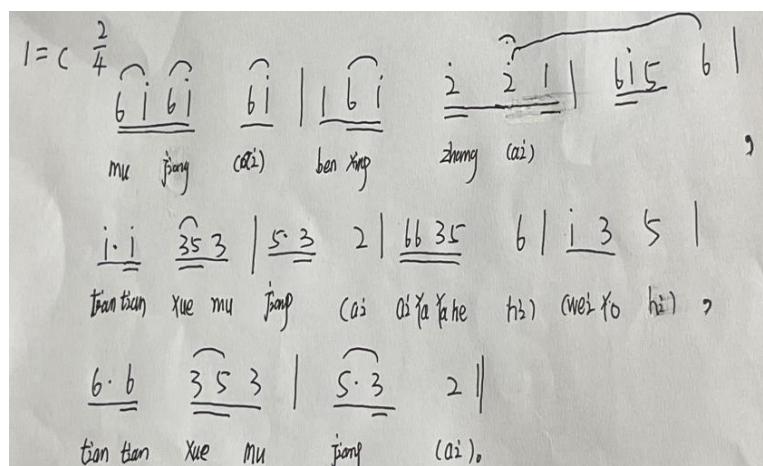 1=C 2/4
6 i 6 i 6 i | 1 6 i 2̇ 2̇ 1 | 6 i 5 6 |
mu jiang (ai) ben xing zhang (ai) ,
i· i 3 5 3 | 5· 3 2 | 6 6 3 5 6 | i 3 5 |
tian tian xue mu jiang (ai ai ya ya he hi) (wei yo hi) ,
6· 6 3 5 3 | 5· 3 2 ||
tian tian xue mu jiang (ai)。